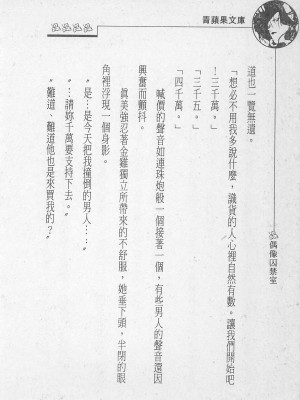 青蘋果文庫
偶像囚禁室
道也一覽無遺。
「想必不用我多說什麼，識貨的人心裡自然有數。讓我們開始吧
！三千萬。」
「三千五。」
「四千萬。」
喊價的聲音如連珠炮般一個接著一個，有些男人的聲音還因
興奮而顫抖。
真美強忍著金雞獨立所帶來的不舒服，她垂下頭，半閉的眼
角裡浮現一個身影。
〝是…是今天把我撞倒的男人…〞
〝…請妳千萬要支持下去。〞
〝難道、難道他也是來買我的？〞